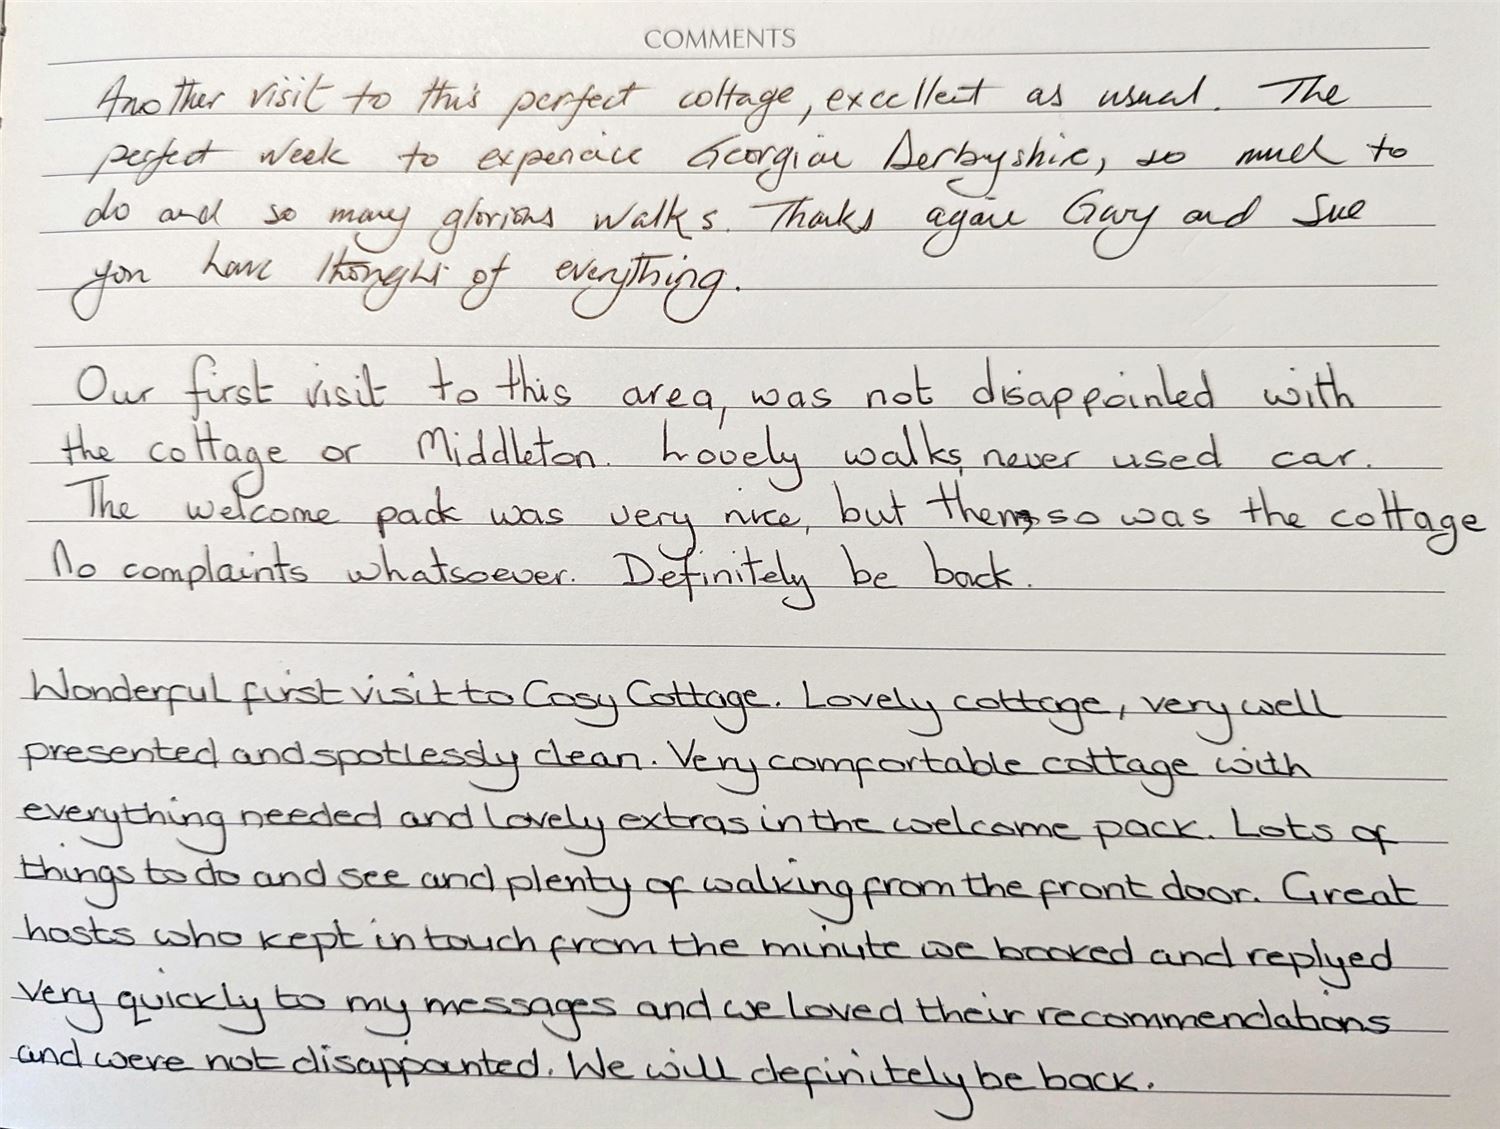 COMMENTS
Another visit to this perfect cottage, excellent as usual. The
perfect week to experience Georgian Derbyshire, so much to
do and so many glorious walks. Thanks again Gary and Sue
you have thought of everything.
Our first visit to this area, was not disappointed with
the cottage or Middleton. Lovely walks, never used car.
The welcome pack was very nice, but then so was the cottage
No complaints whatsoever. Definitely be back.
Wonderful first visit to Cosy Cottage. Lovely cottage, very well
presented and spotlessly clean. Very comfortable cottage with
everything needed and lovely extras in the welcome pack. Lots of
things to do and see and plenty of walking from the front door. Great
hosts who kept in touch from the minute we booked and replyed
very quickly to my messages and we loved their recommendations
and were not disappointed. We will definitely be back.